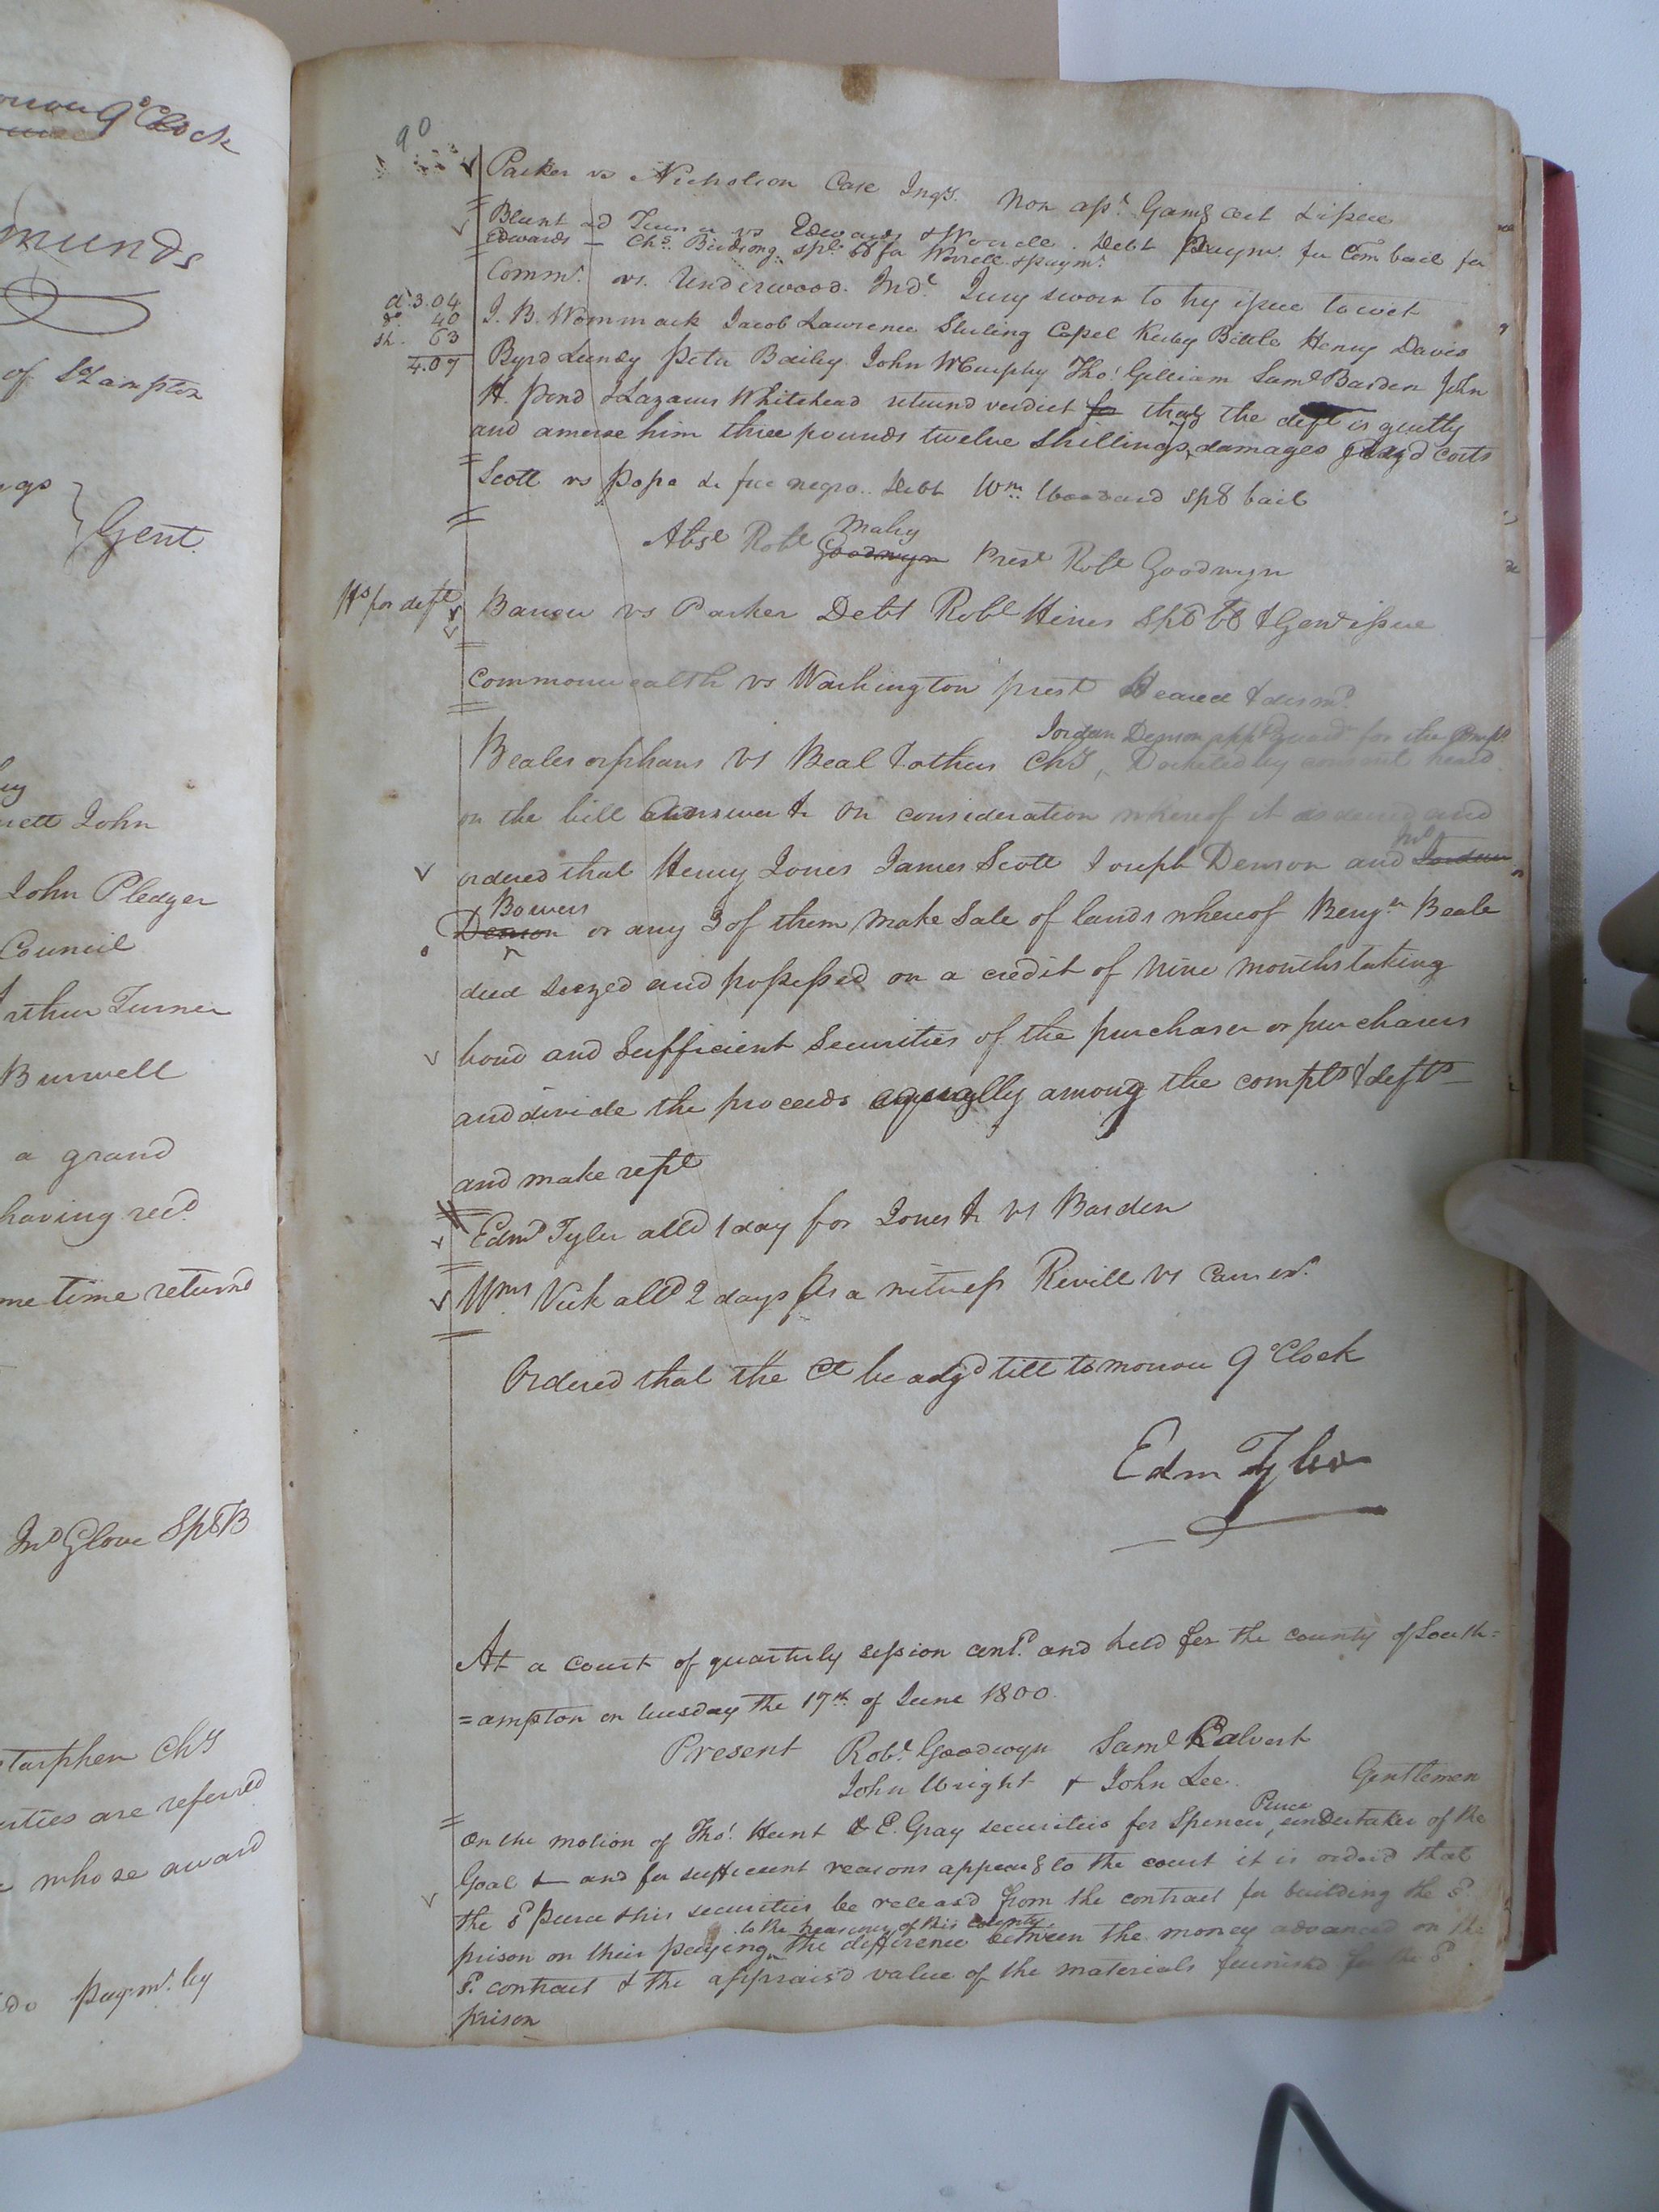 orrow 9 oClock
munds
of S Hampton
Gent.
nett John
John Pledger
Council
Arthur Turner
Burwell
a grand
having recd.
me time returnd
Jno Glover Sp B
rties are referred
whose award
do paymt. by
90
Parker vs Nicholson Case Non apt.
Blunt ad Turner vs Edwards & Worrell. Debt paymt. for Com bail for
Edwards — Chs. Birdsong spl. bb for Worrell & paymt.
Commw. vs. Underwood. Indt. Jury sworn to try issue towit
d. 3.04
do. 40
sh. 63
4.07
J. B. Wommack Jacob Lawrence Sterling Capel Kirby Bittle Henry Davis
Byrd Lundy Peter Bailey John Murphy Thos. Gilliam Saml Barden John
H. Pond & Lazarus Whitehead returnd verdict for that the deft is guilty
and amerse him three pounds twelve shillings damages & costs
Scott vs Pope a free negro.. Debt Wm. Woodard sp8 bail
Mabry
Abst Robt Goodwyn Prest Robt Goodwyn
Hs for deft
Barrow vs Parker Debt Robt Hines sp8 b8 & Genl issue
Commonwealth vs Washington prest Heard & dismd.
Jordan Denson appd guard. for the compts
Beales orphans vs Beal & others Ch8, Docketed by consent heard
on the bill answer & on consideration whereof it is decreed and
ordered that Henry Jones James Scott Joseph Denson and Jordan
Bowers
Denson or any 3 of them make sale of lands whereof Benjn. Beale
died siezed and possessed on a credit of nine months taking
bond and sufficient securities of the purchaser or purchasers
and divide the proceeds equally among the compts & defts
and make rept
Edmd Tyler alld 1 day for Jones & vs Barden
Wms Vick alld 2 days As a witness Revill vs
Ordered that the Ct be adjd till tomorrow 9 oClock
Edm Tyler
At a court of quarterly session contd. and held for the county of South=
=ampton on tuesday the 17th. of June 1800.
Present Robt. Goodwyn Saml Calvert
John Wright & John Lee. Gentlemen
Peirce
On the motion of Thos. Hunt & E. Gray securities for Spencer, undertaker of the
Goal & and for sufficient reasons appear8 to the court it is orderd that
the sd Peirce & his securities be releasd from the contract for building the sd.
to the treasury of this county
prison on their paying the difference between the money advanced on the
sd. contract & the appraisd value of the materials furnished for the sd
prison